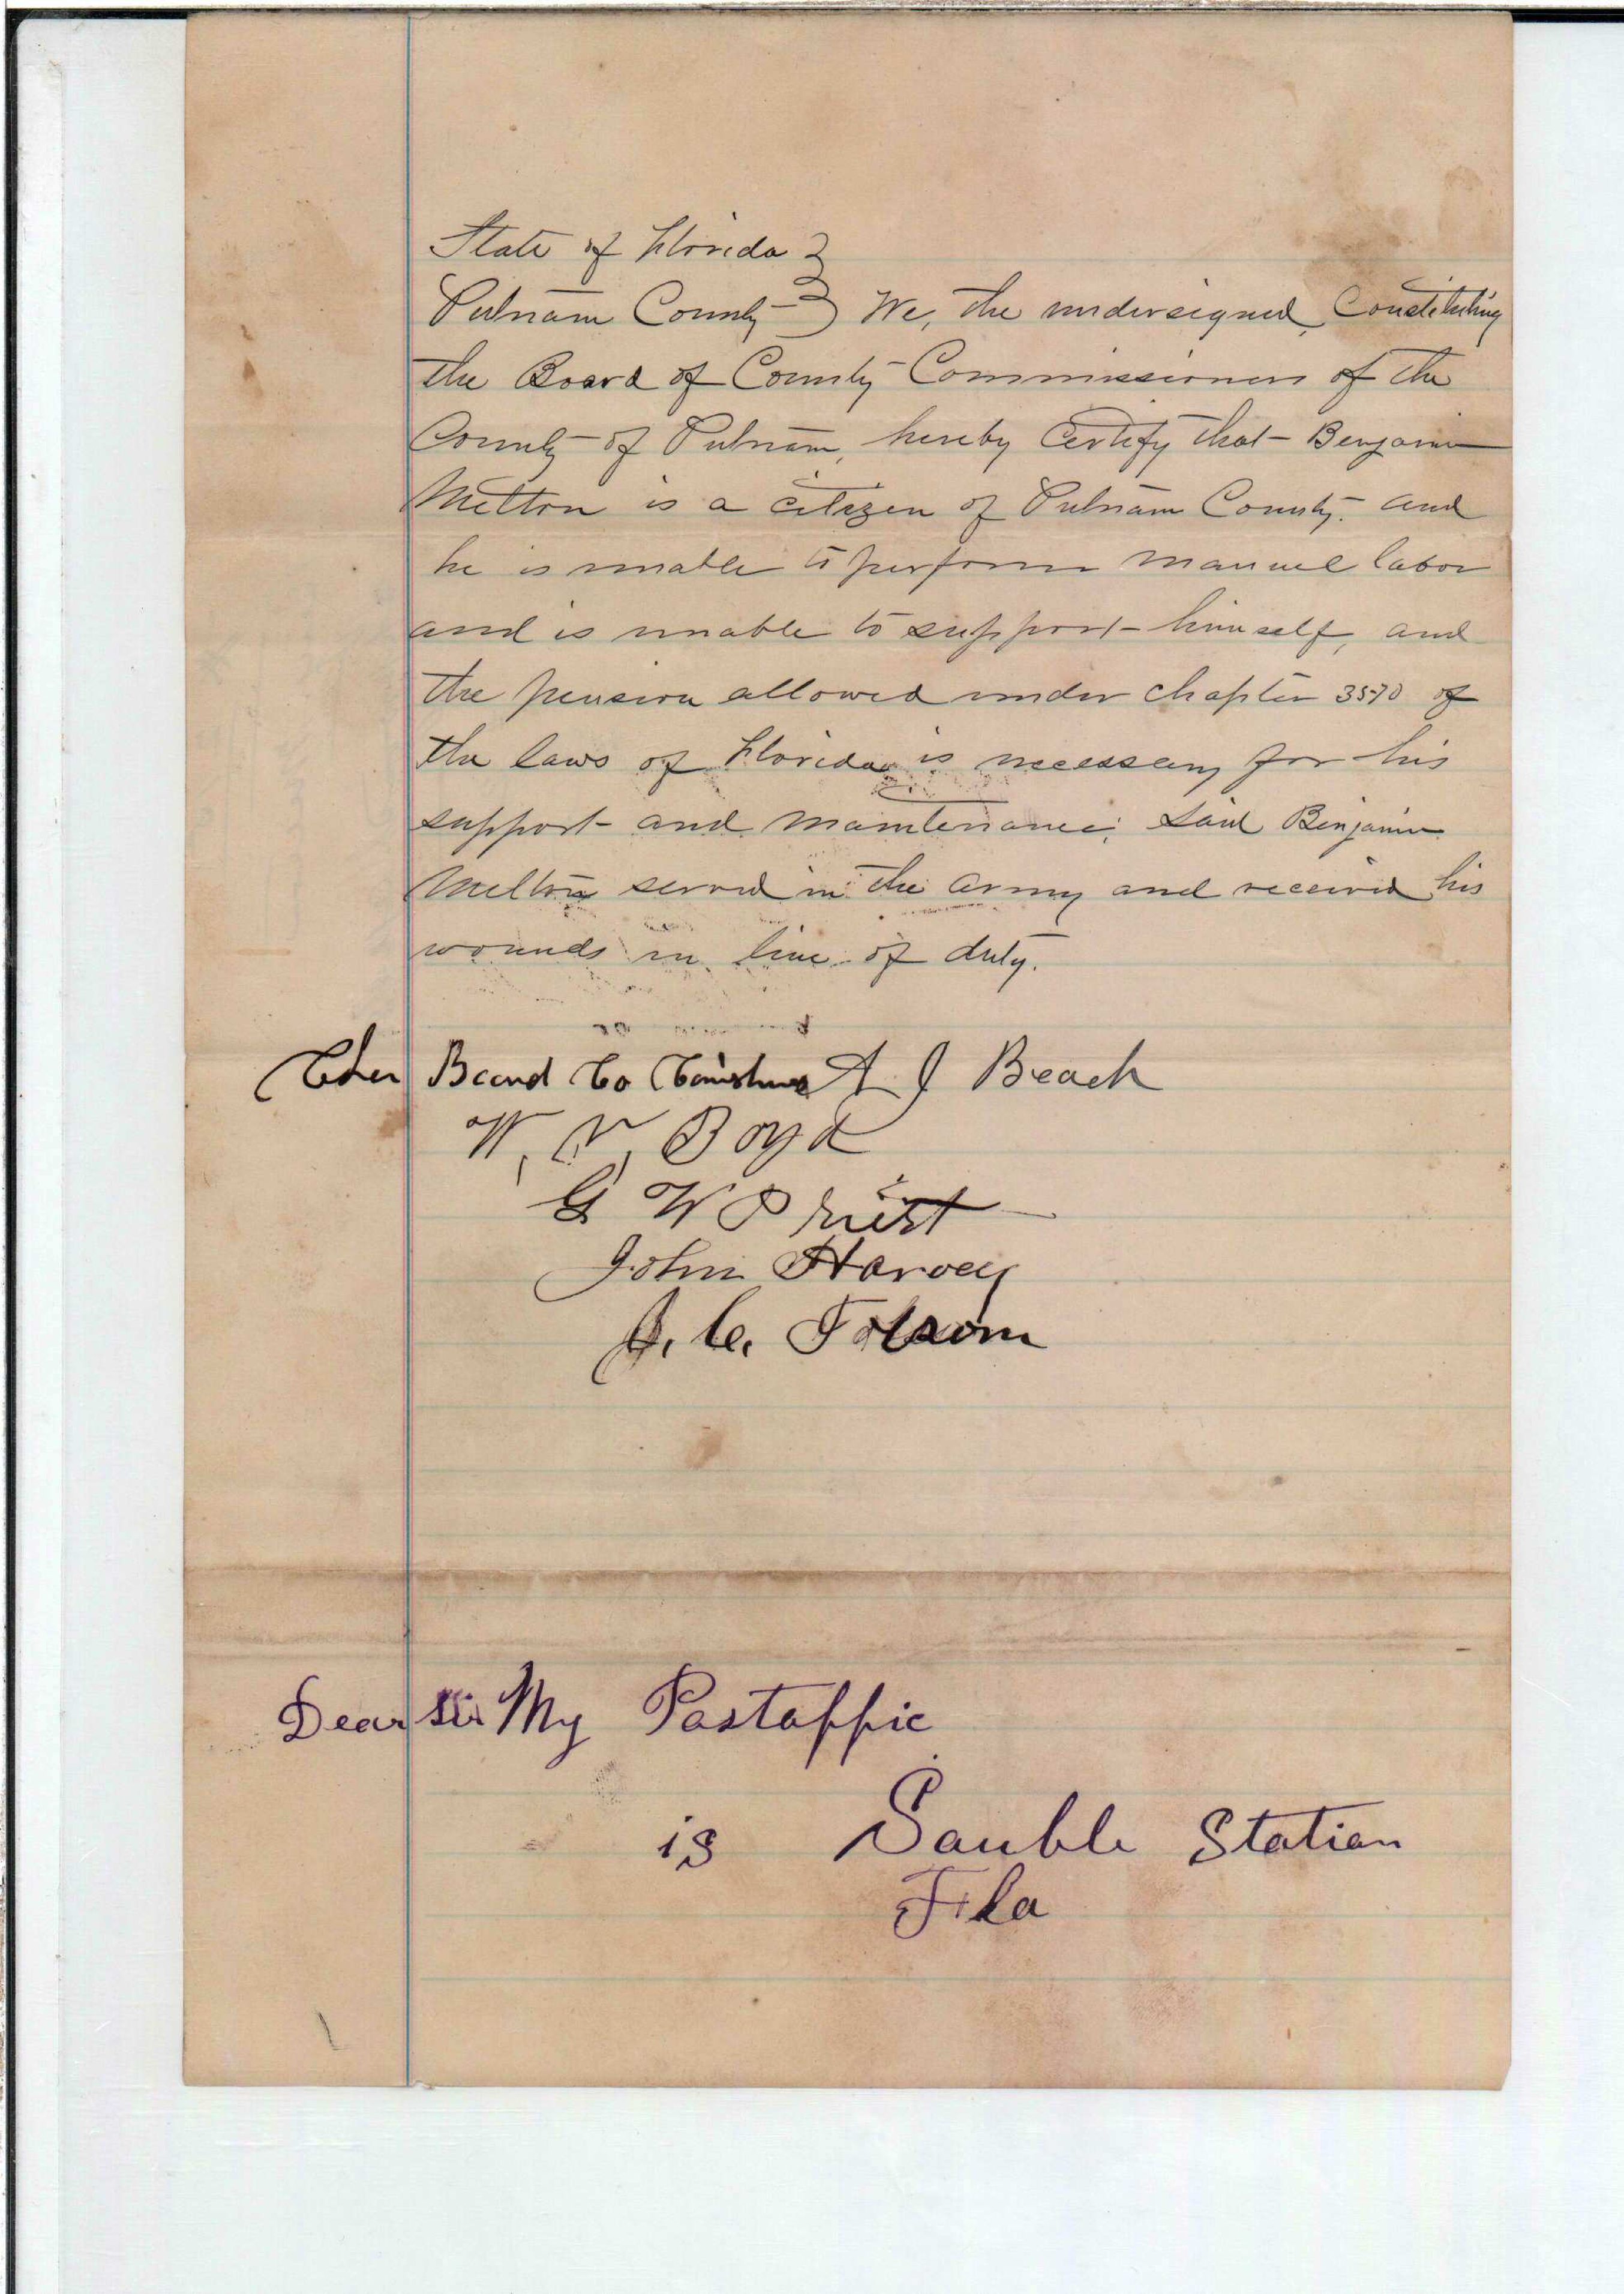 State of Florida }
Putnam County } We, the undersigned, Constituting
the Board of County Commissioners of the
County of Putnam, hereby Certify that Benjamin
Melton is a citizen of Putnam County and
he is unable to perform manuel labor
and is unable to support himself, and
the pension allowed under chapter 3570 of
the laws of Florida is necessary for his
support and maintenance; Said Benjamin
Melton served in the army and received his
wounds in line of duty.
Board Co A J Beach
W. Boyd
G W Priest
John Harvey
J. C. Folsom
Dear Sir My Postoffic
is Sauble Station
Fla